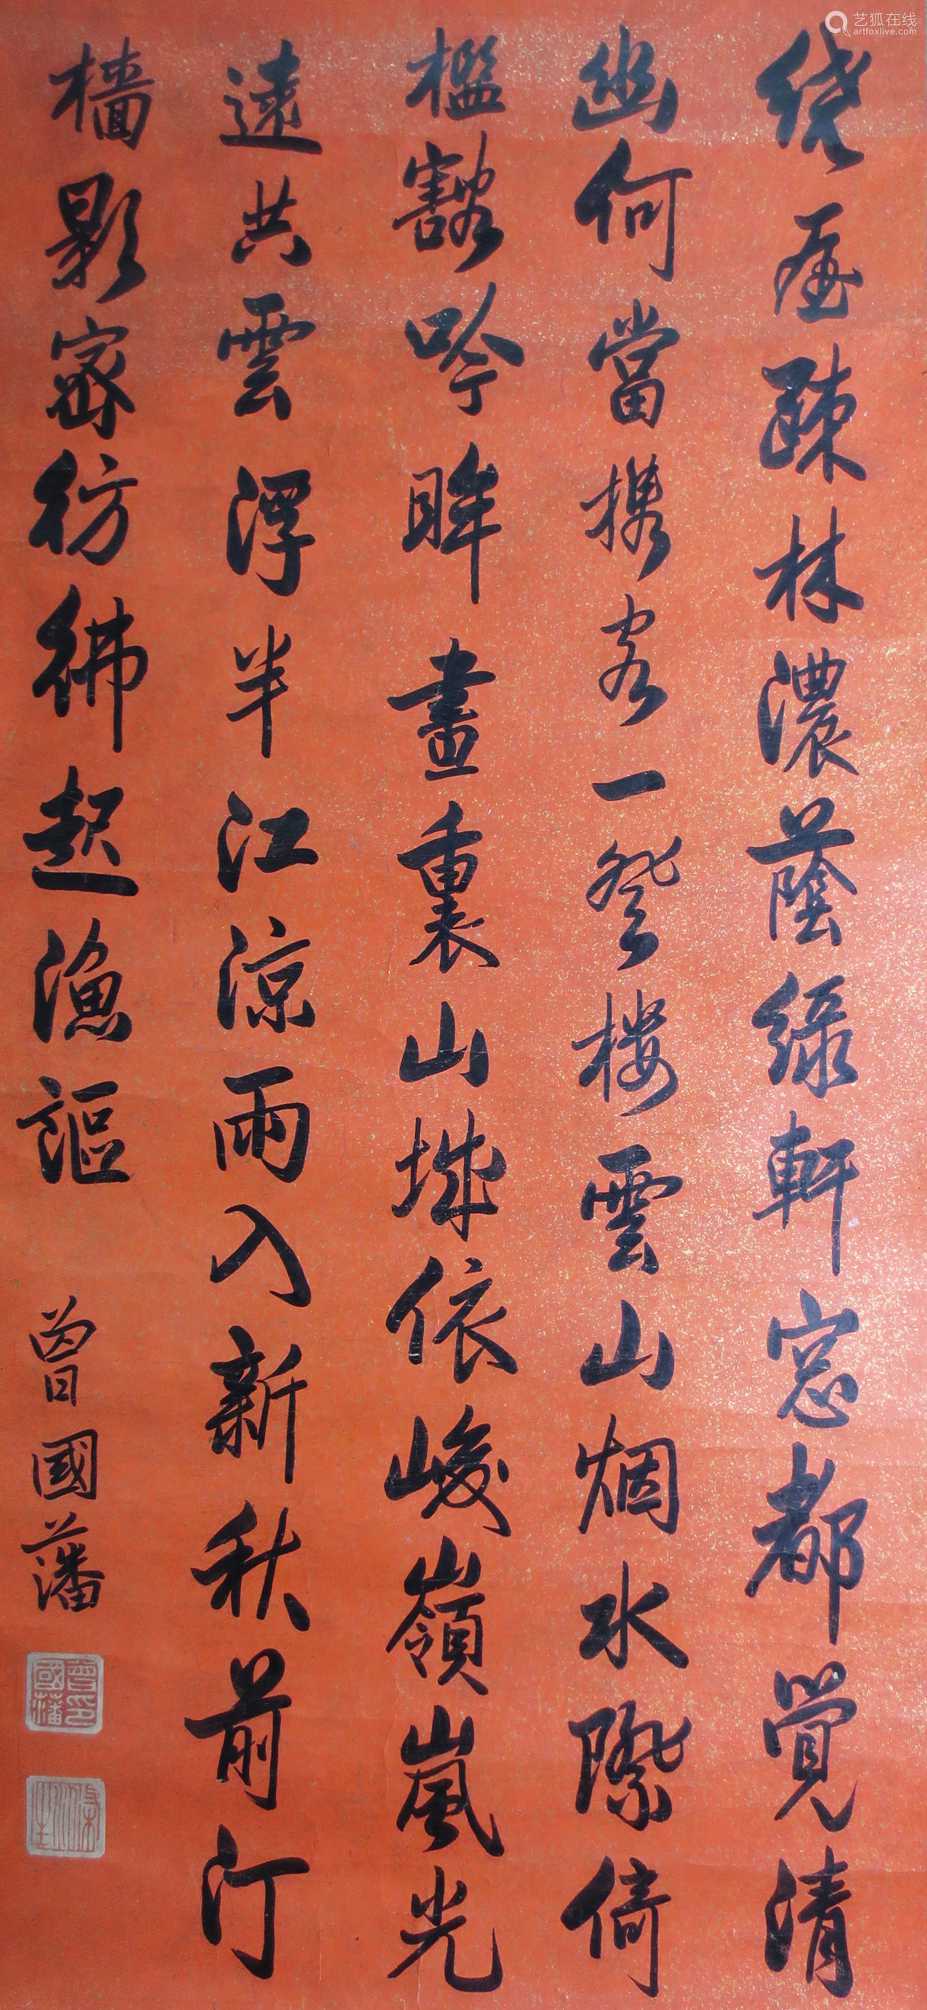 繞屋疎林濃蔭綠軒窓都覺清
幽何當携客一登樓雲山烟水際倚
檻豁吟眸畫裏山城依峻嶺嵐光
遠共雲浮半江涼雨入新秋前汀
檣影密彷彿起漁謳
曾國藩
曾國藩印
艺狐在线
artfoxlive.com